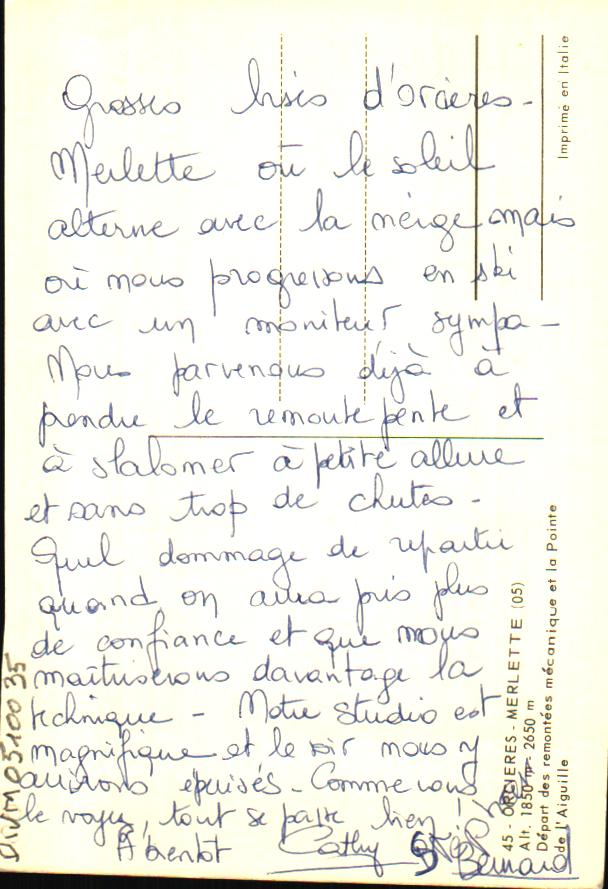 Grosses bises d'Orcières-
Merlette où le soleil
alterne avec la neige mais
où nous progressons en ski
avec un moniteur sympa -
Nous parvenons déjà à
prendre le remonte pente et
à slalomer à petite allure
et sans trop de chutes -
Quel dommage de repartir
quand on aura pris plus
de confiance et que nous
maîtriserons davantage la
technique - Notre studio est
magnifique et le soir nous y
arrivons épuisés - Comme vous
le voyez, tout se passe bien !
A bientôt Cathy
Bernard
Imprimé en Italie
45 - ORCIERES - MERLETTE (05)
Alt. 1850 m - 2650 m
Départ des remontées mécanique et la Pointe
de l'Aiguille